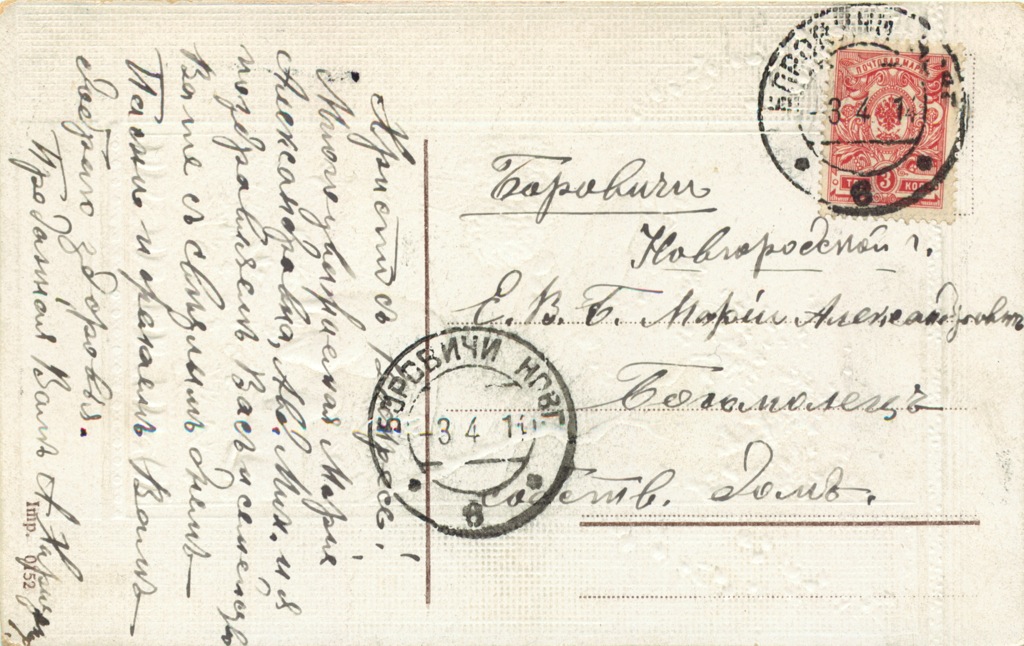 Христосъ Воскресе!
Многоуважаемая Марiя
Александровна, Ав. Мих. и я
поздровляемъ Васъ и семейство
Ваше съ свѣтлымъ днемъ
Пасхи и орелаемъ Вамъ
добраго здоровья.
Преданная Вамъ А.
Imp. 0152
Боровичи
Новгородской г.
Е. В. Б. Марiи Александровнѣ
Богомолецъ
собств. домъ.
БОРОВИЧИ НОВГ.
-3 4 14
8
БОРОВИЧИ НОВГ.
-3 4 14
8
ПОЧТОВАЯ МАРКА
3
ТРИ КОП.